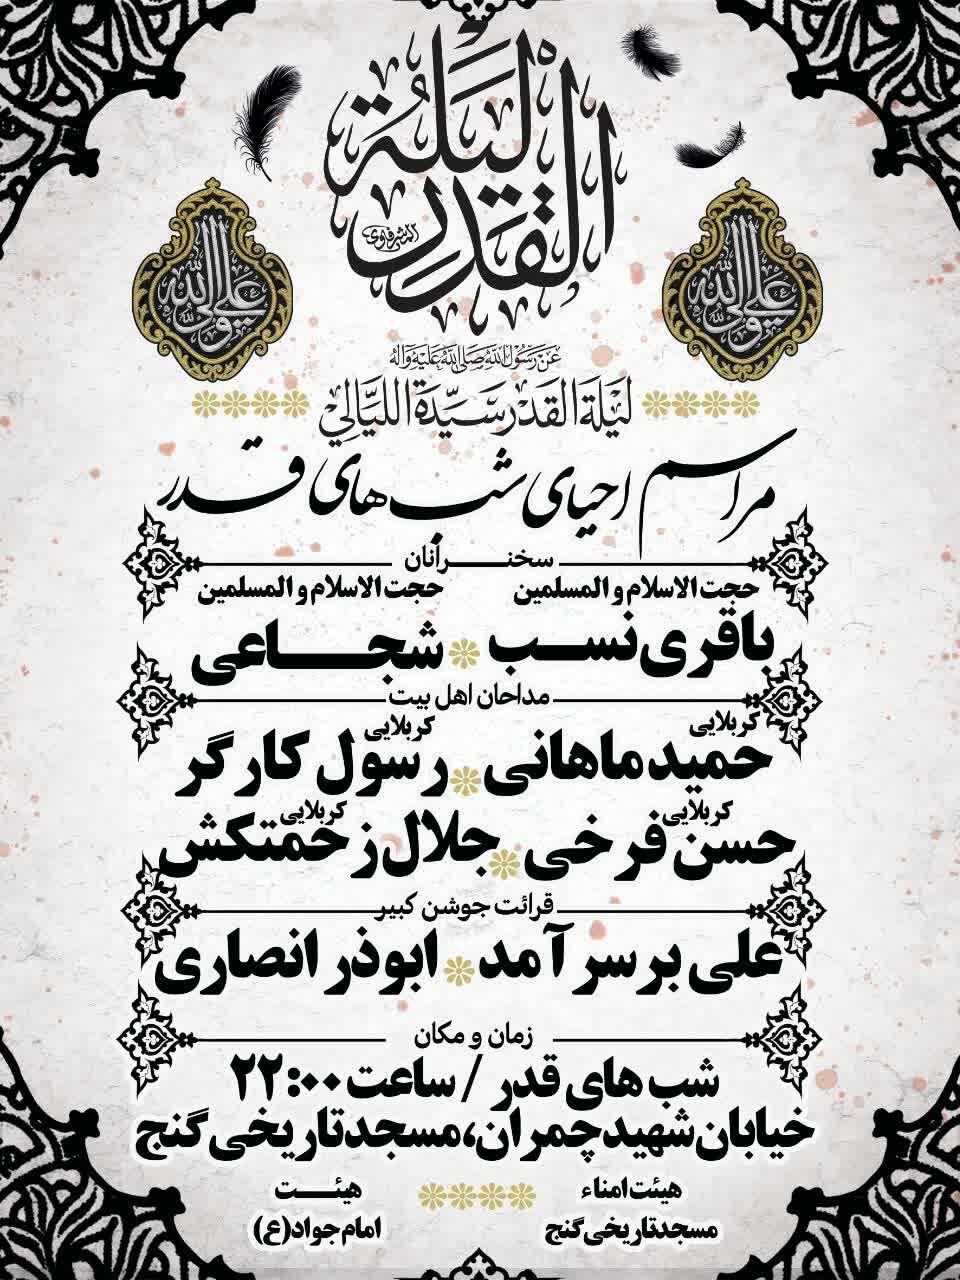 ليلة القدر
المشرفاوی
علي ولي الله
علي ولي الله
عن رسول الله صلی الله علیه وآله
لیلة القدر سیدة اللیالي
مراسم احیای شب‌های قدر
سخنرانان
حجت الاسلام و المسلمین حجت الاسلام و المسلمین
باقری نسب شجاعی
مداحان اهل بیت
کربلایی کربلایی
حمید ماهانی رسول کارگر
کربلایی کربلایی
حسن فرخی جلال زحمتکش
قرائت جوشن کبیر
علی برسرآمد ابوذر انصاری
زمان و مکان
شب های قدر / ساعت ۲۲:۰۰
خیابان شهید چمران، مسجد تاریخی گنج
هیئت امناء هیئت
مسجد تاریخی گنج امام جواد(ع)